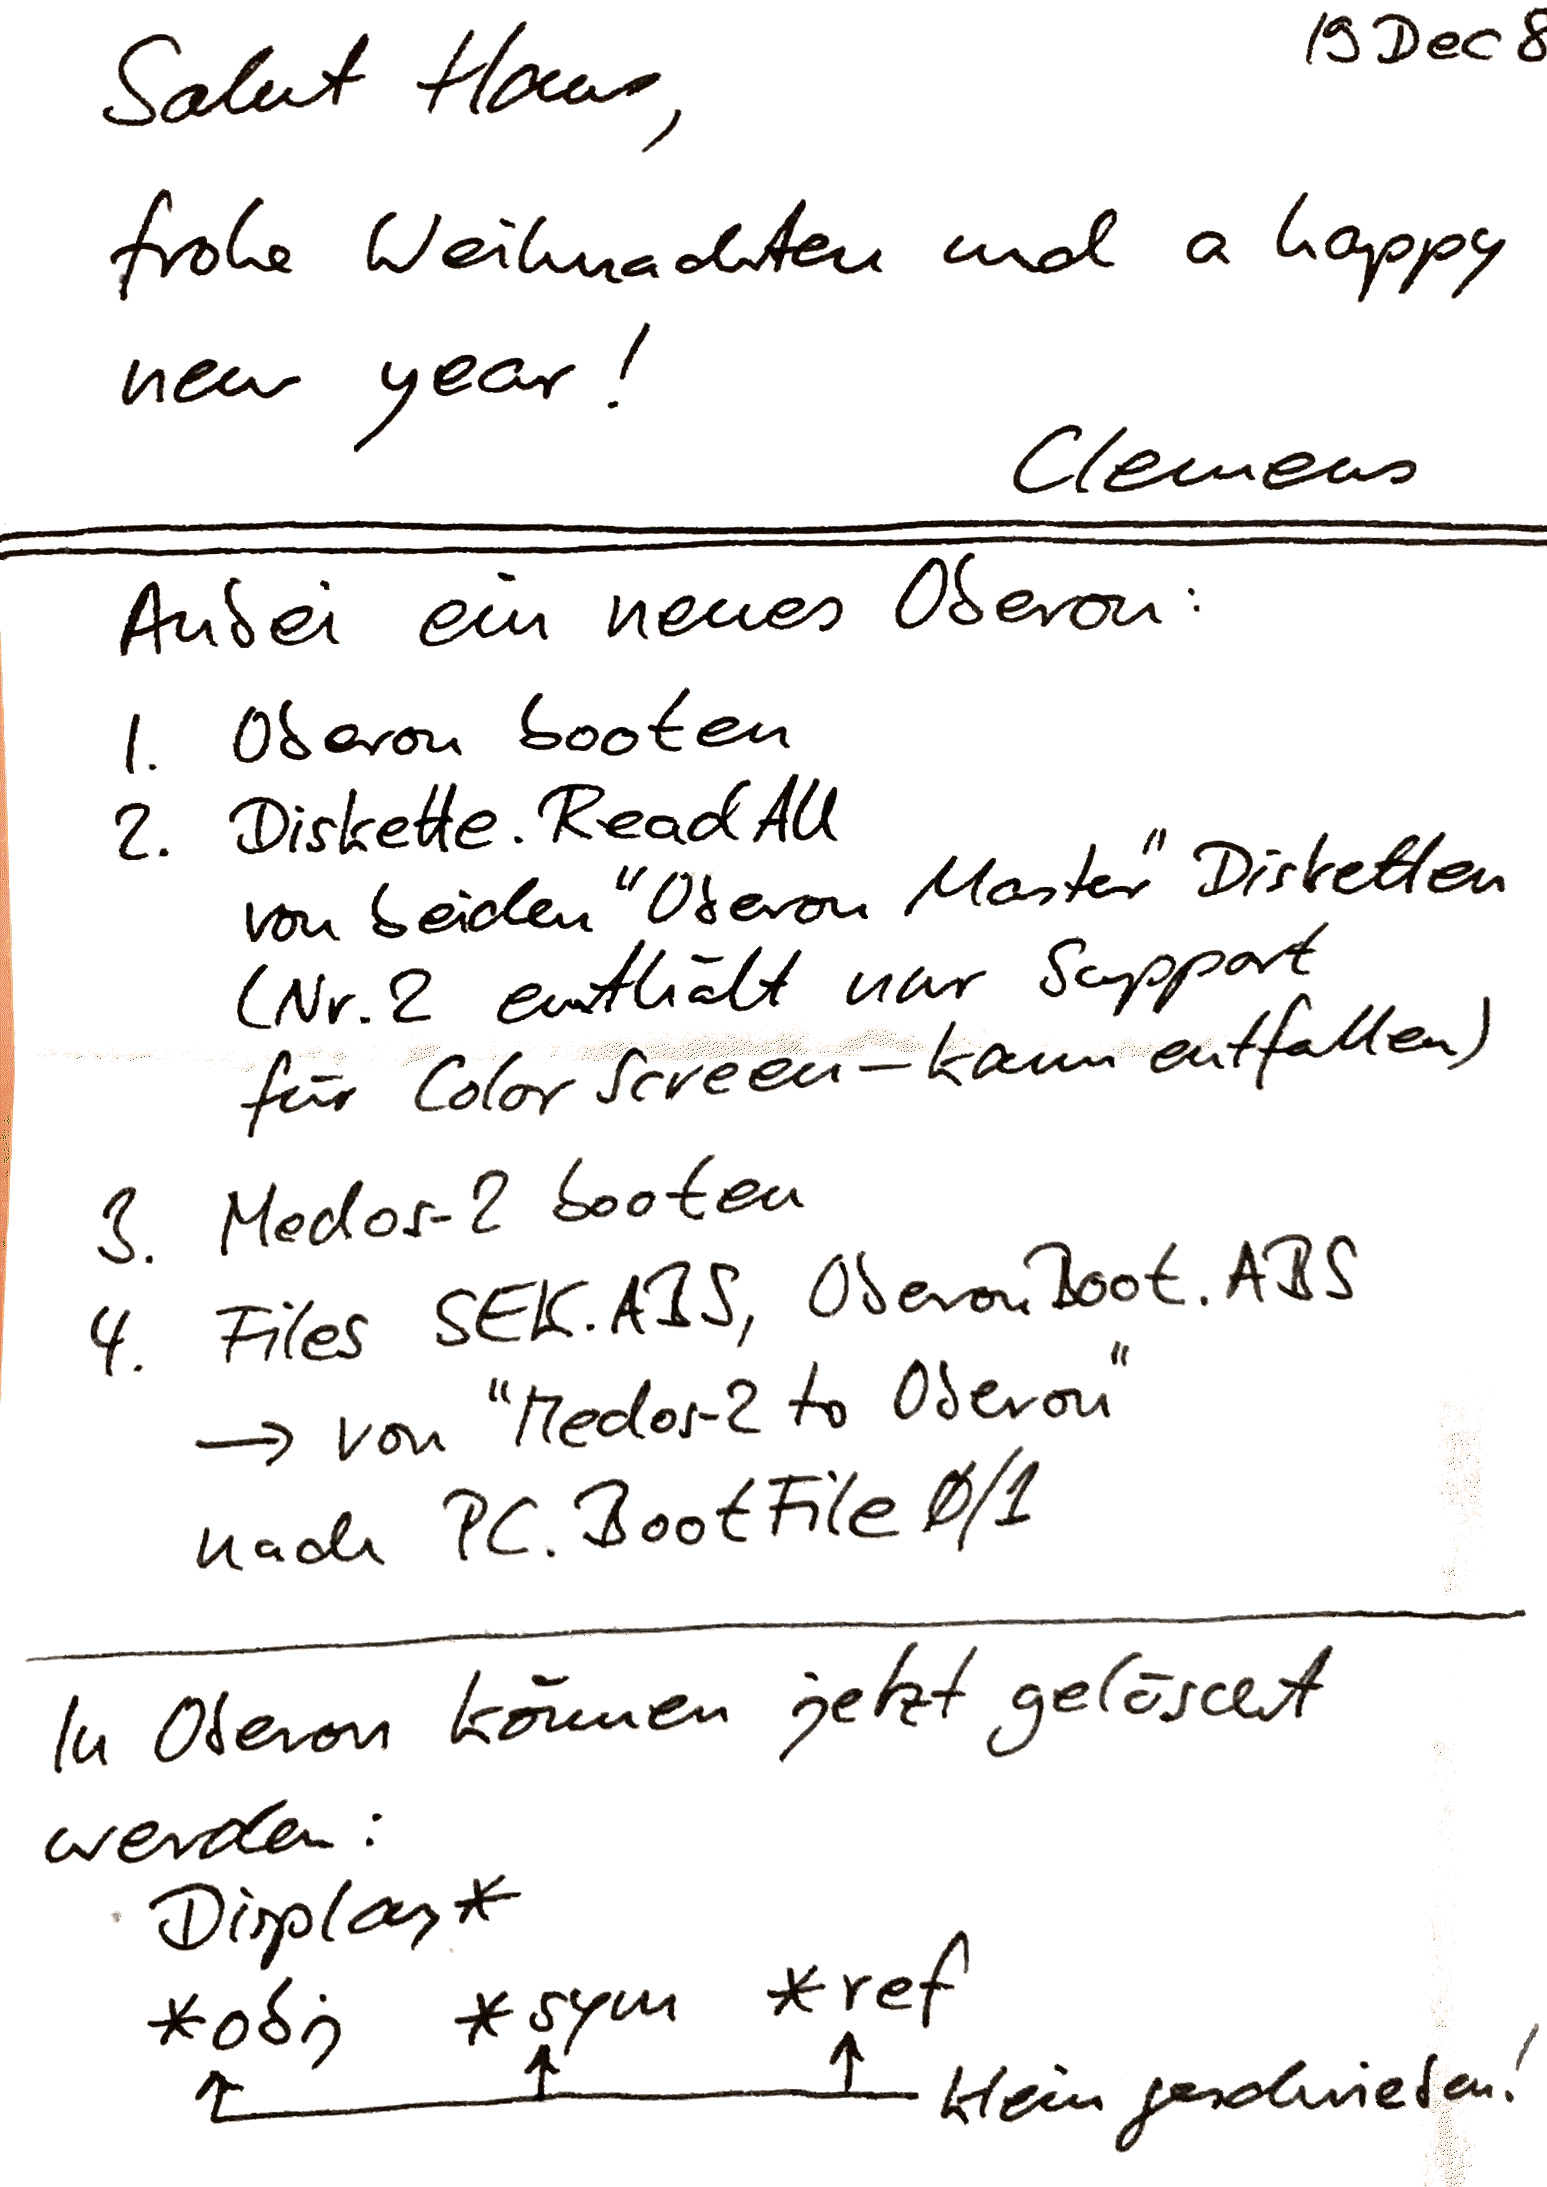 19 Dec 8
Salut Hans,
frohe Weihnachten und a happy
new year!
Clemens
Anbei ein neues Oberon:
1. Oberon booten
2. Diskette.ReadAll
von beiden "Oberon Master" Disketten
(Nr. 2 enthält nur Support
für Color Screen – kann entfallen)
3. Medos-2 booten
4. Files SEK.ABS, OberonBoot.ABS
→ von "Medos-2 to Oberon"
nach PC.BootFile0/1
In Oberon können jetzt gelöscht
werden:
Display*
*obj *sym *ref
klein geschrieben!